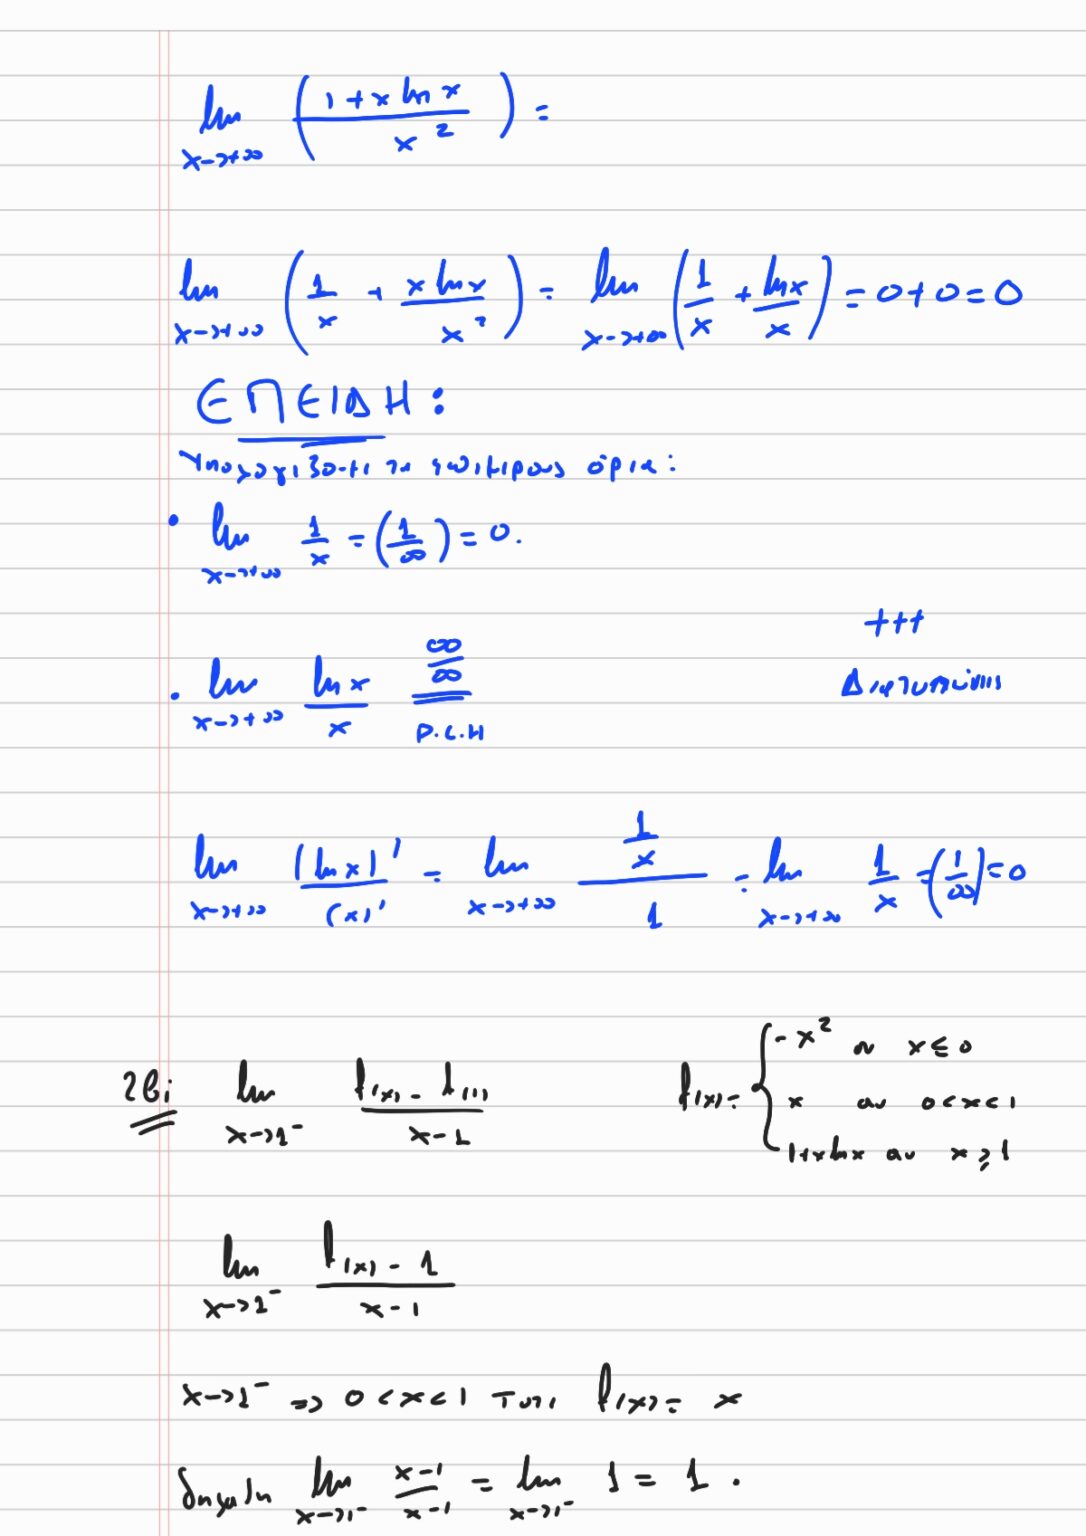 lim x→+∞ ( (1 + x ln x) / x² ) =
lim x→+∞ ( 1/x + (x ln x)/x² ) = lim x→+∞ ( 1/x + (ln x)/x ) = 0 + 0 = 0
ΕΠΕΙΔΗ :
Υπολογίζοντας τα όρια :
• lim x→+∞ 1/x = (1/∞) = 0.
+++
• lim x→+∞ (ln x)/x =(∞/∞)= D.L.H
lim x→+∞ (ln x)'/(x)' = lim x→+∞ (1/x)/1 = lim x→+∞ 1/x = (1/∞) = 0
2βi lim x→1⁻ (f(x) - f(1))/(x - 1) f(x) = { -x² αν x ≤ 0
x αν 0 < x < 1
1+x ln x αν x ≥ 1
lim x→1⁻ (f(x) - 1)/(x - 1)
x→1⁻ => 0 < x < 1 τοτε f(x) = x
δηλαδη lim x→1⁻ (x-1)/(x-1) = lim x→1⁻ 1 = 1 .